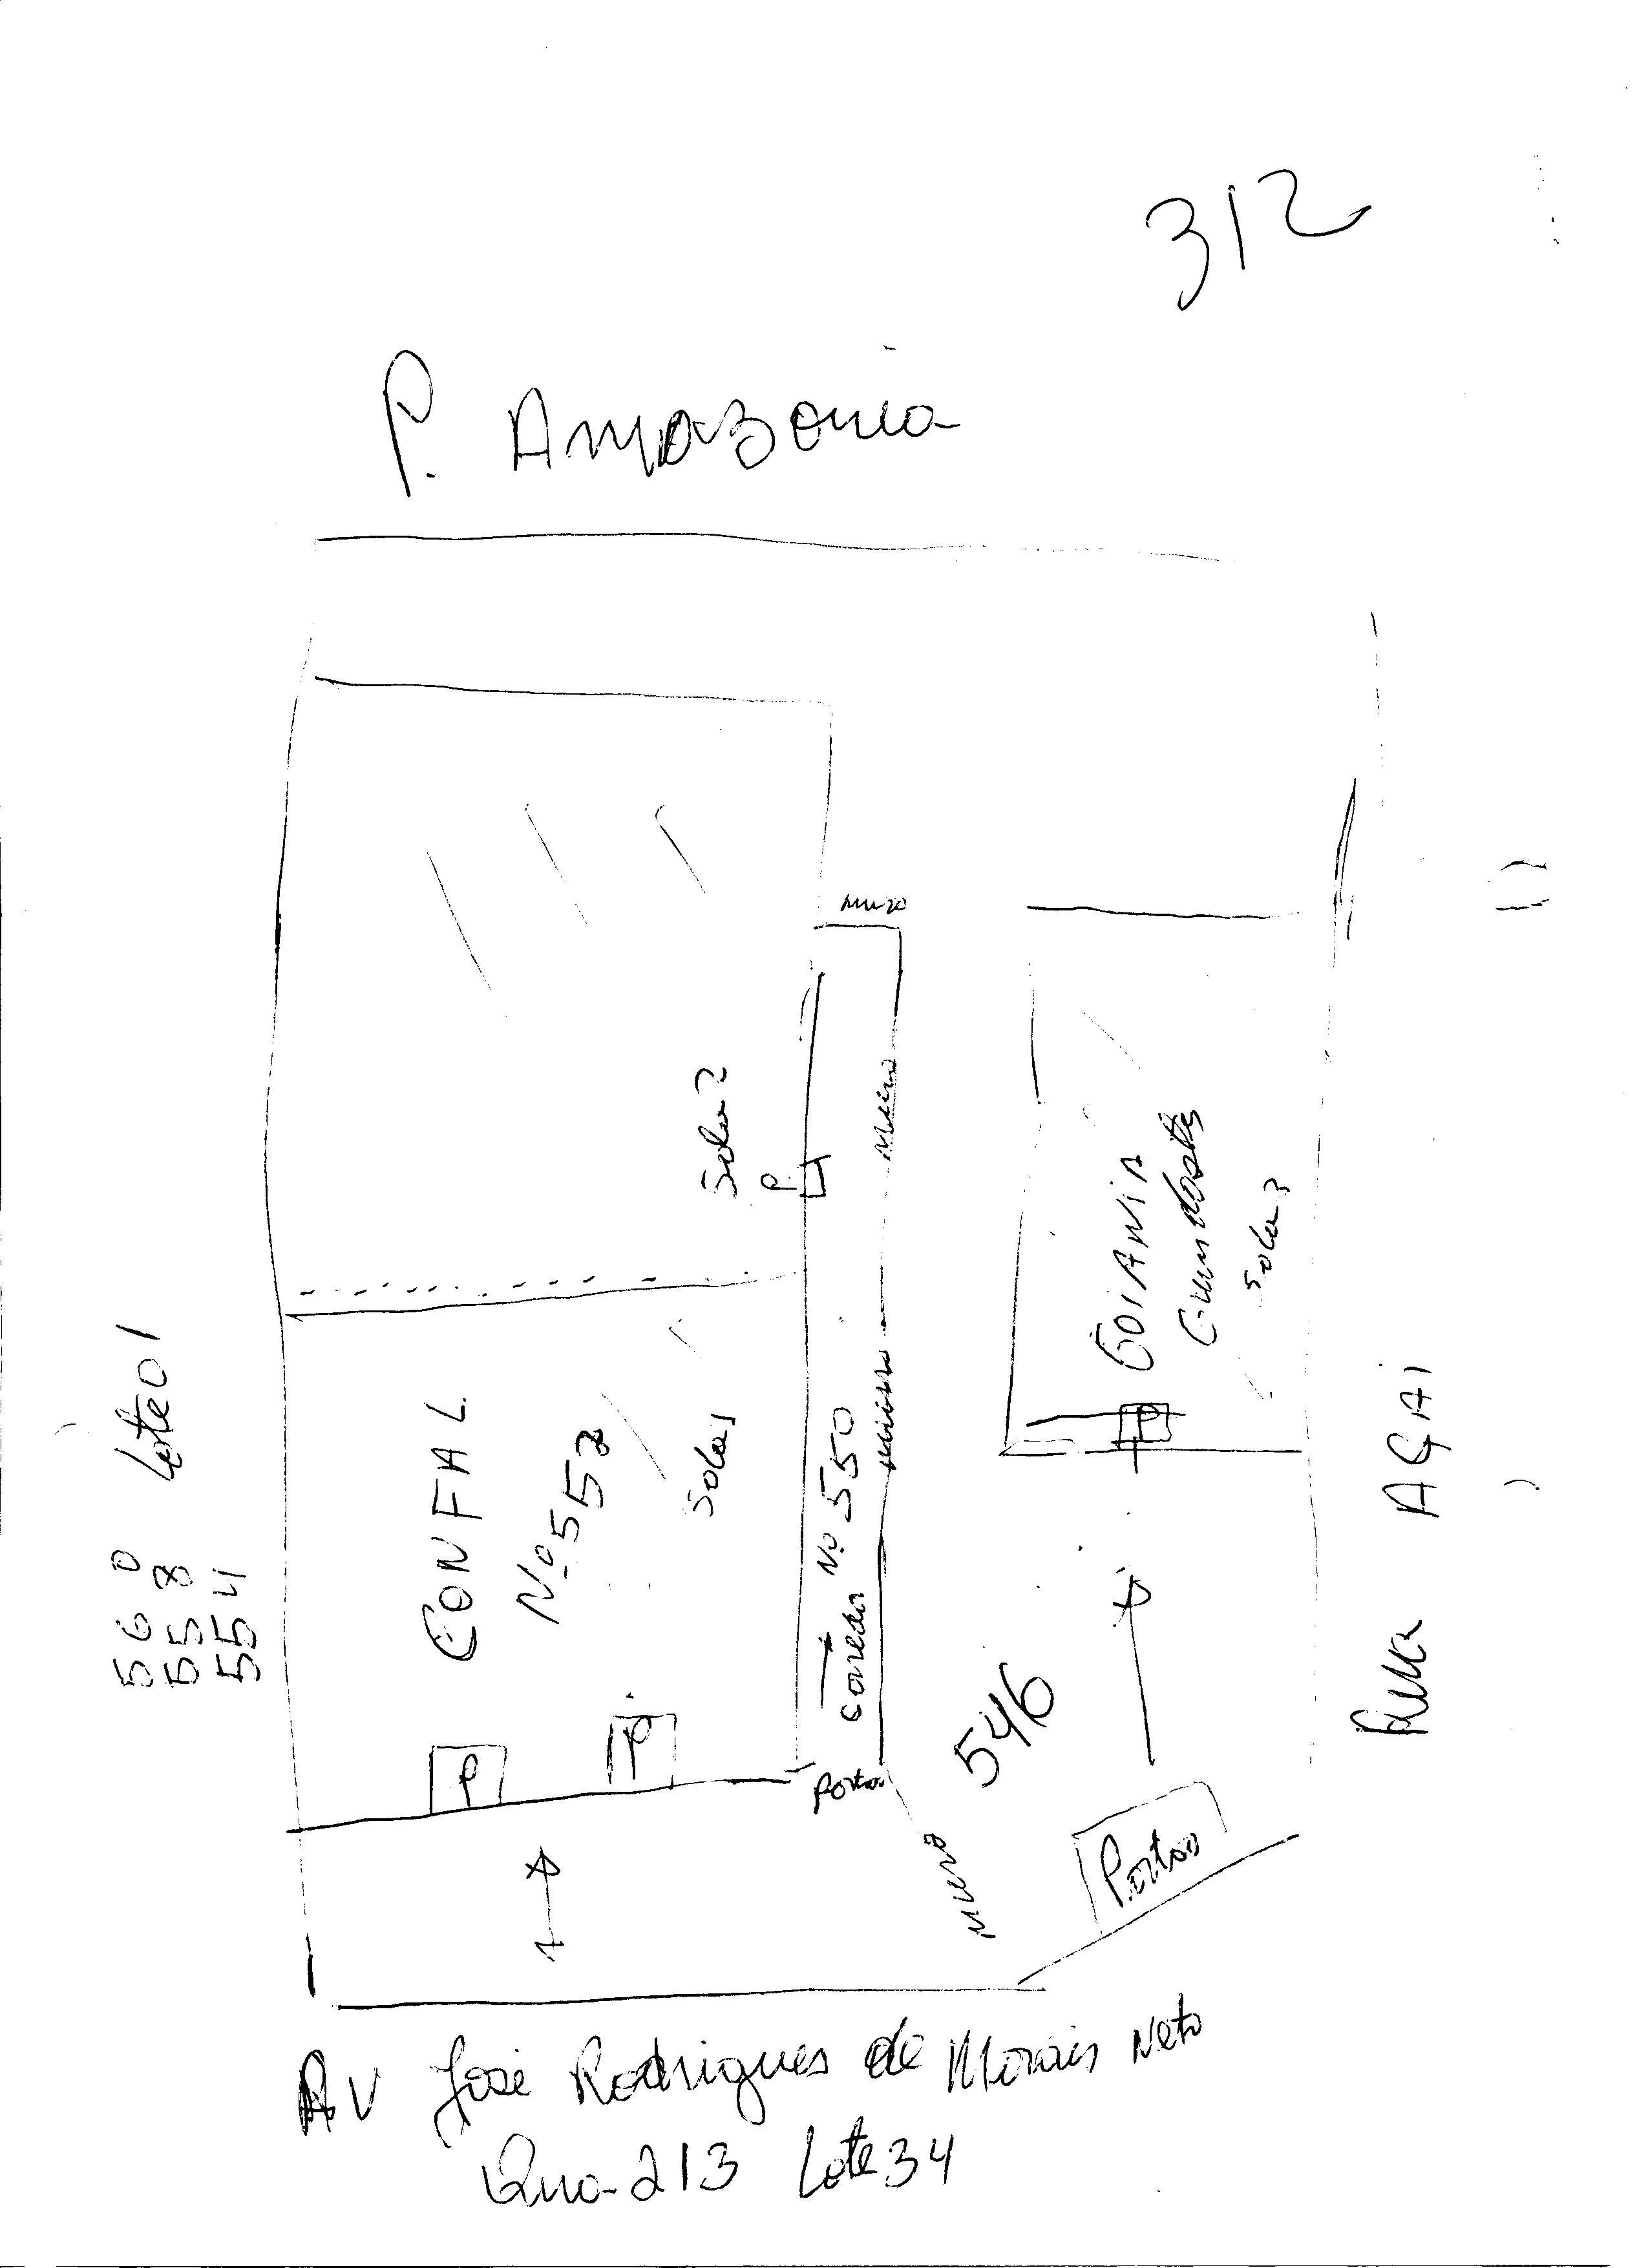 312
P. Amazonia
muro
Sala 2
P
Muro
GOIANIA
Sala 3
P
Lote 01
560
558
554
CONFAL
Nº 552
Sala 1
Corredor Nº 550
P
P
Portão
546
Muro
Portão
Rua AÇAI
AV José Rodrigues de Morais Neto
Qua-213 Lote 34